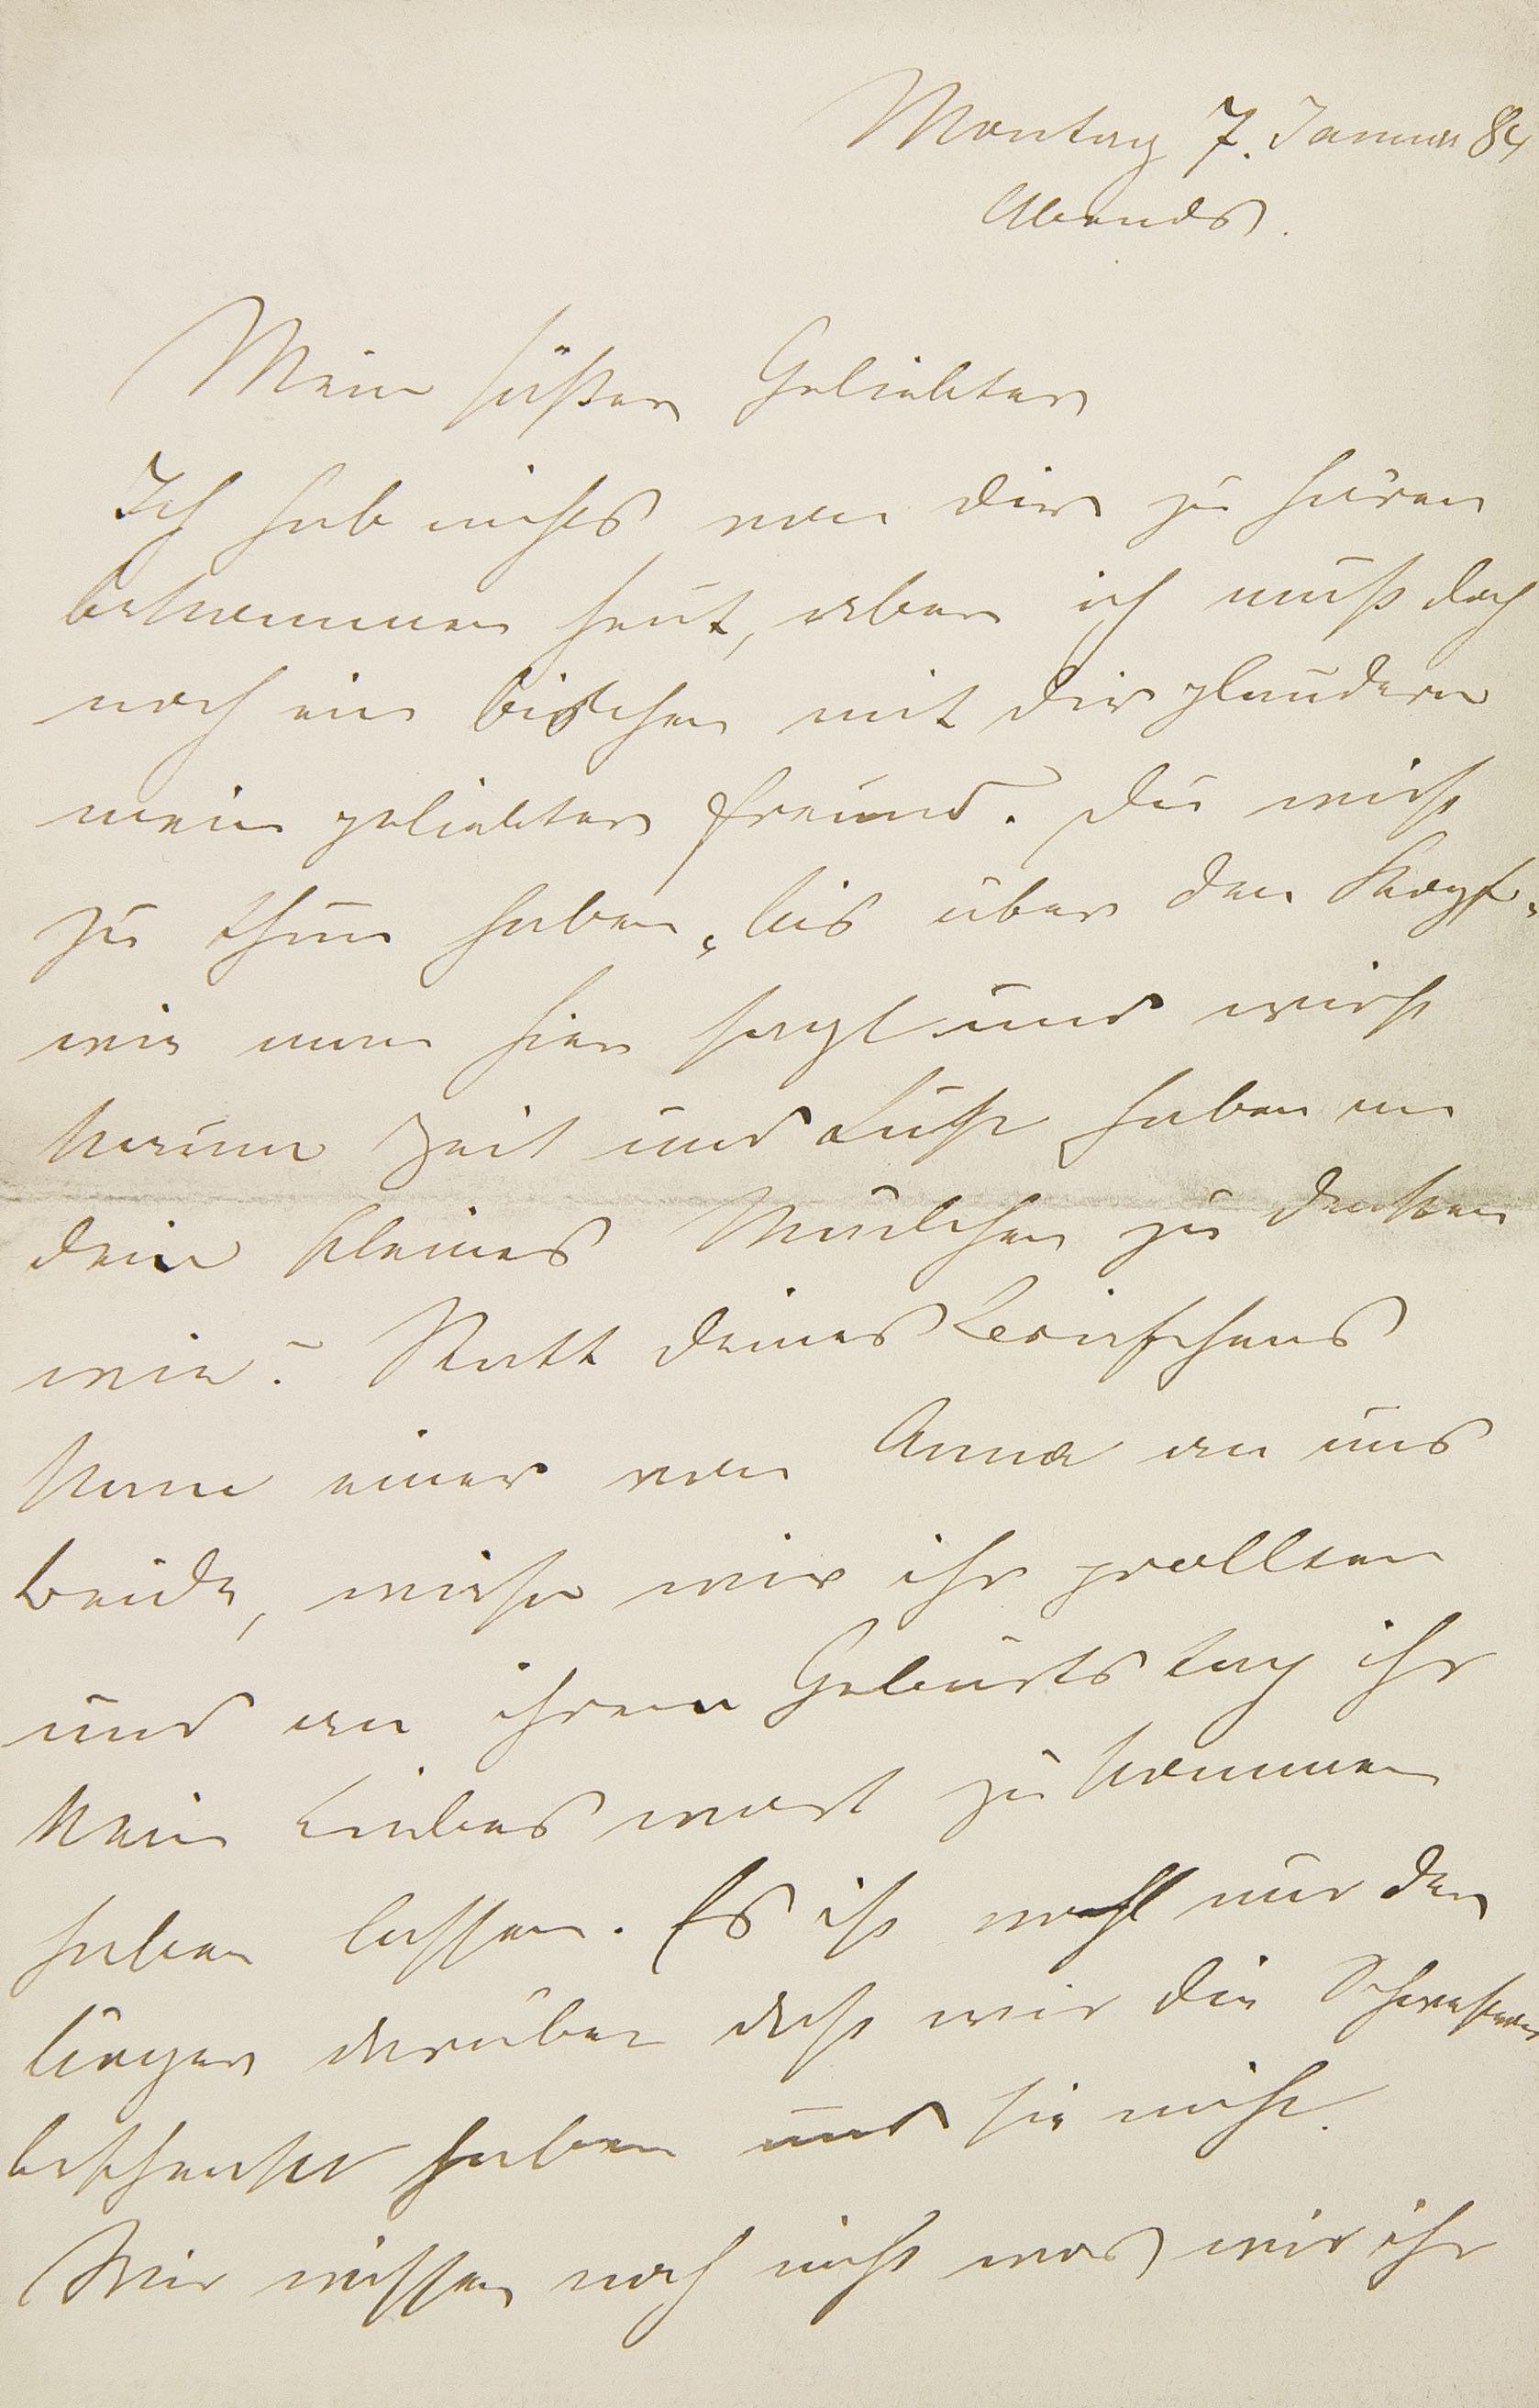 Montag 7. Januar 84
Abends.
Mein süßer Geliebter
Ich hab nichts von dir zu hören
bekommen heut, aber ich muß doch
noch ein bischen mit dir plaudern
mein geliebter Freund. Du wirst
zu thun haben „bis über den Kopf“
wie man hier sagt und wirst
kaum Zeit und Lust haben an
dein kleines Mädchen zu denken
wie? Statt deines Briefchens
kam einer von Anna an uns
beide, wir ihr grollten
und an ihrem Geburtstag ihr
kein liebes wort zu kommen
haben lassen. Es ist wohl nur der
Ärger darüber daß wir die Schwestern
beschenkt haben und sie nicht.
Wir wissen noch nicht was wir ihr